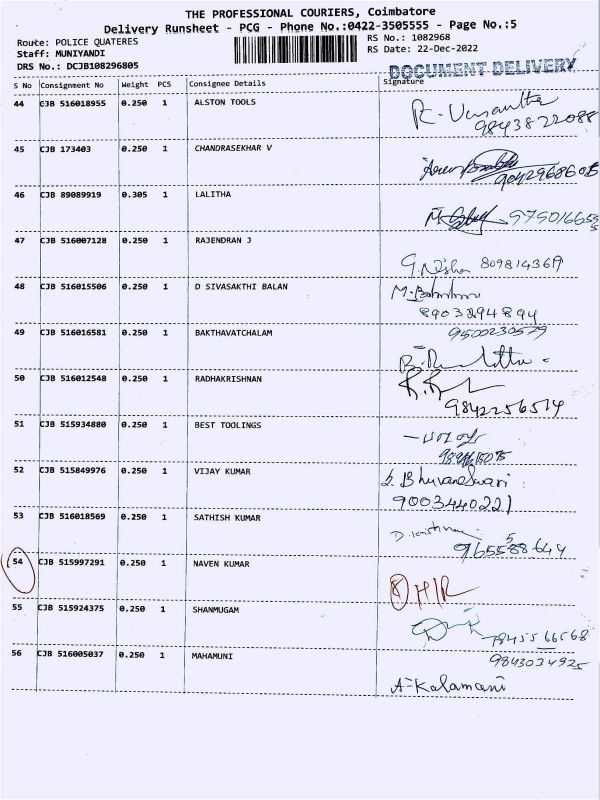 THE PROFESSIONAL COURIERS, Coimbatore
Delivery Runsheet - PCG - Phone No.:0422-3505555 - Page No.:5
Route: POLICE QUATERES RS No.: 1082968
Staff: MUNIYANDI RS Date: 22-Dec-2022
DRS No.: DCJB108296805
DOCUMENT DELIVERY
S No Consignment No Weight PCS Consignee Details Signature
44 CJB 516018955 0.250 1 ALSTON TOOLS
R. Vasantha
9843822088
45 CJB 173403 0.250 1 CHANDRASEKHAR V
9042968605
46 CJB 89089919 0.305 1 LALITHA
47 CJB 516007128 0.250 1 RAJENDRAN J
G. Nisha 809814369
48 CJB 516015506 0.250 1 D SIVASAKTHI BALAN
8903294894
49 CJB 516016581 0.250 1 BAKTHAVATCHALAM
9500230579
50 CJB 516012548 0.250 1 RADHAKRISHNAN
9842256514
51 CJB 515934880 0.250 1 BEST TOOLINGS
52 CJB 515849976 0.250 1 VIJAY KUMAR
S. Bhuvaneswari
9003440221
53 CJB 516018569 0.250 1 SATHISH KUMAR
D. Krishna
54 CJB 515997291 0.250 1 NAVEN KUMAR
H/R
55 CJB 515924375 0.250 1 SHANMUGAM
7845566568
56 CJB 516005037 0.250 1 MAHAMUNI
9843034925
A-Kalamani